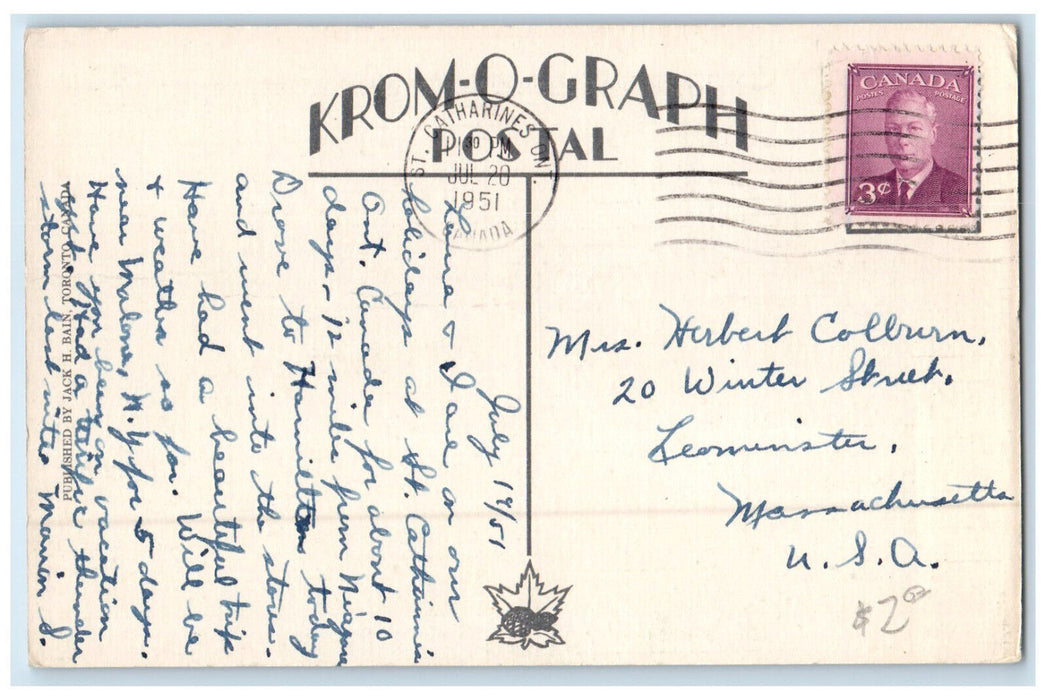 KROM-O-GRAPH
POSTAL
ST. CATHARINES ONT.
PM
JUL 20
1951
CANADA
CANADA
POSTES POSTAGE
3¢
July 19/51
& I are on our
holidays at St. Catharines
Ont. Canada for about 10
days. 12 miles from Niagara
Drove to Hamilton today
and went into the stores.
Have had a beautiful trip
& weather so far. Will be
near Malone, N.Y. for 5 days.
Have you been on vacation
yet. Had a terrific thunder
storm last nite. S.
PUBLISHED BY JACK H. BAIN, TORONTO, CANADA
Mrs. Herbert Colburn,
20 Winter Street,
Leominster,
Massachusetts
U. S. A.
$2.00